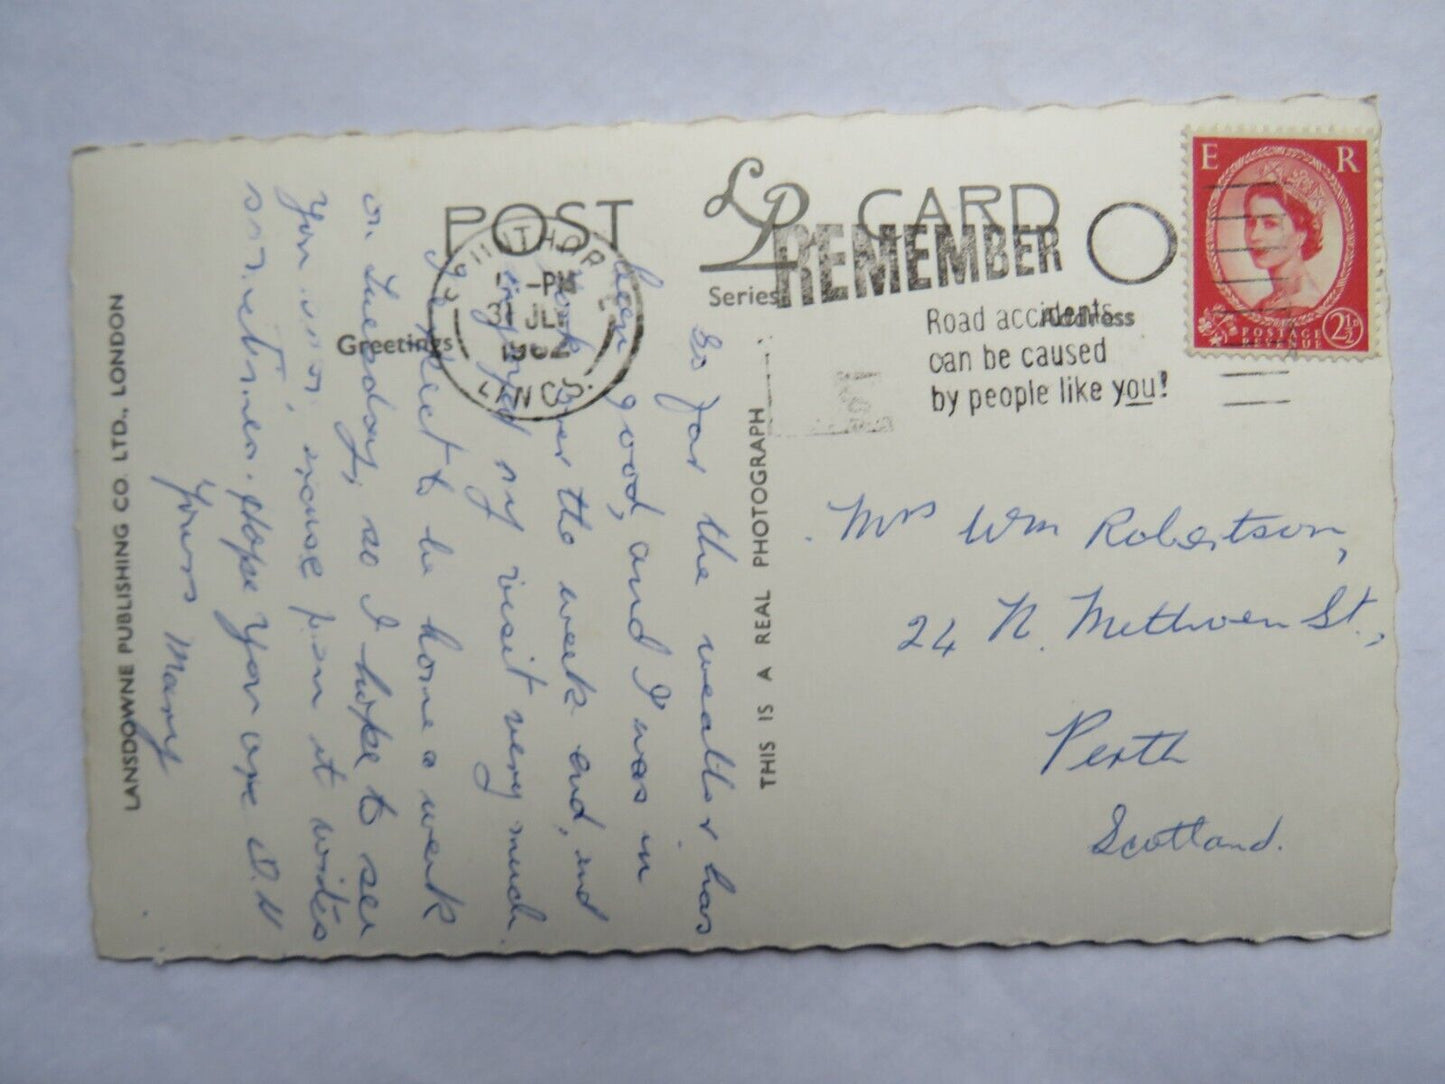 POST LP CARD
Series
Greetings
Address
SCUNTHORPE
-PM
31 JLY
1962
LINCS.
REMEMBER
Road accidents
can be caused
by people like you!
E R
POSTAGE
REVENUE
2½D
So far the weather has
been good, and I was in
York over the week end, and
enjoyed my visit very much
I expect to be home a week
on Tuesday, so I hope to see
You
sometimes. Hope you are O.K
Yours Mary
LANSDOWNE PUBLISHING CO. LTD., LONDON
THIS IS A REAL PHOTOGRAPH
Mrs Wm Robertson,
24 N. Methven St.,
Perth
Scotland.